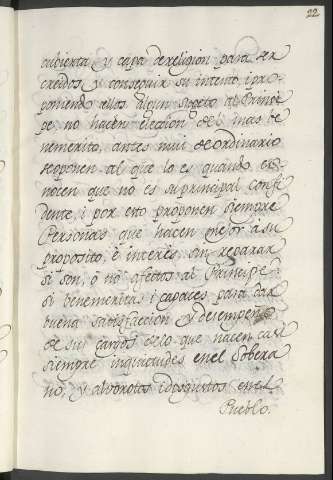 22
cubierta, y capa de religion para ser
creidos y conseguir su intento, i pro-
poniendo ellos algun sugeto al Princi
pe no hacen eleccion del mas be
nemerito, antes mui de ordinario
se oponen al que lo es quando co-
nocen que no es su principal confi
dente, i por esto proponen siempre
Personas que hacen mejor a su
proposito, è interès, sin reparar
si son, ò no afectos al Principe
si benemeritas i capaces para dar
buena satisfaccion y desempeño
de sus cargos de lo que nacen casi
siempre inquietudes en el Sobera
no, y alvorotos i disgustos en el
Pueblo.